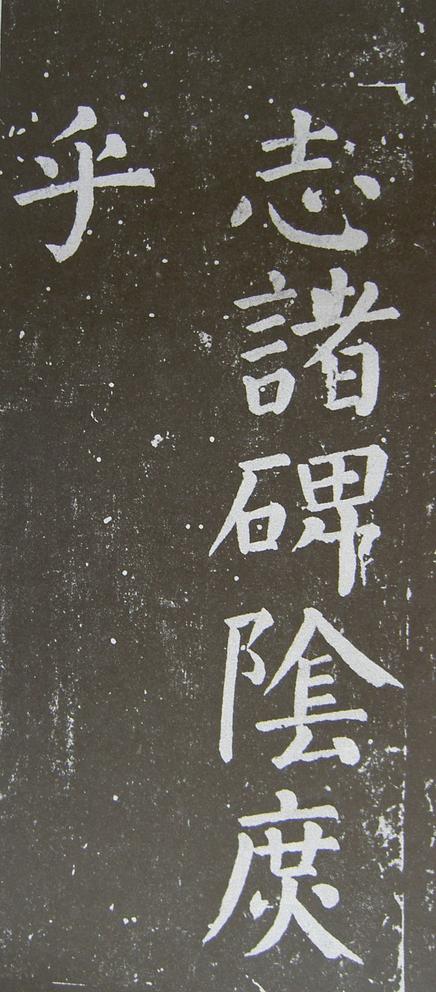 志諸碑陰庶
乎